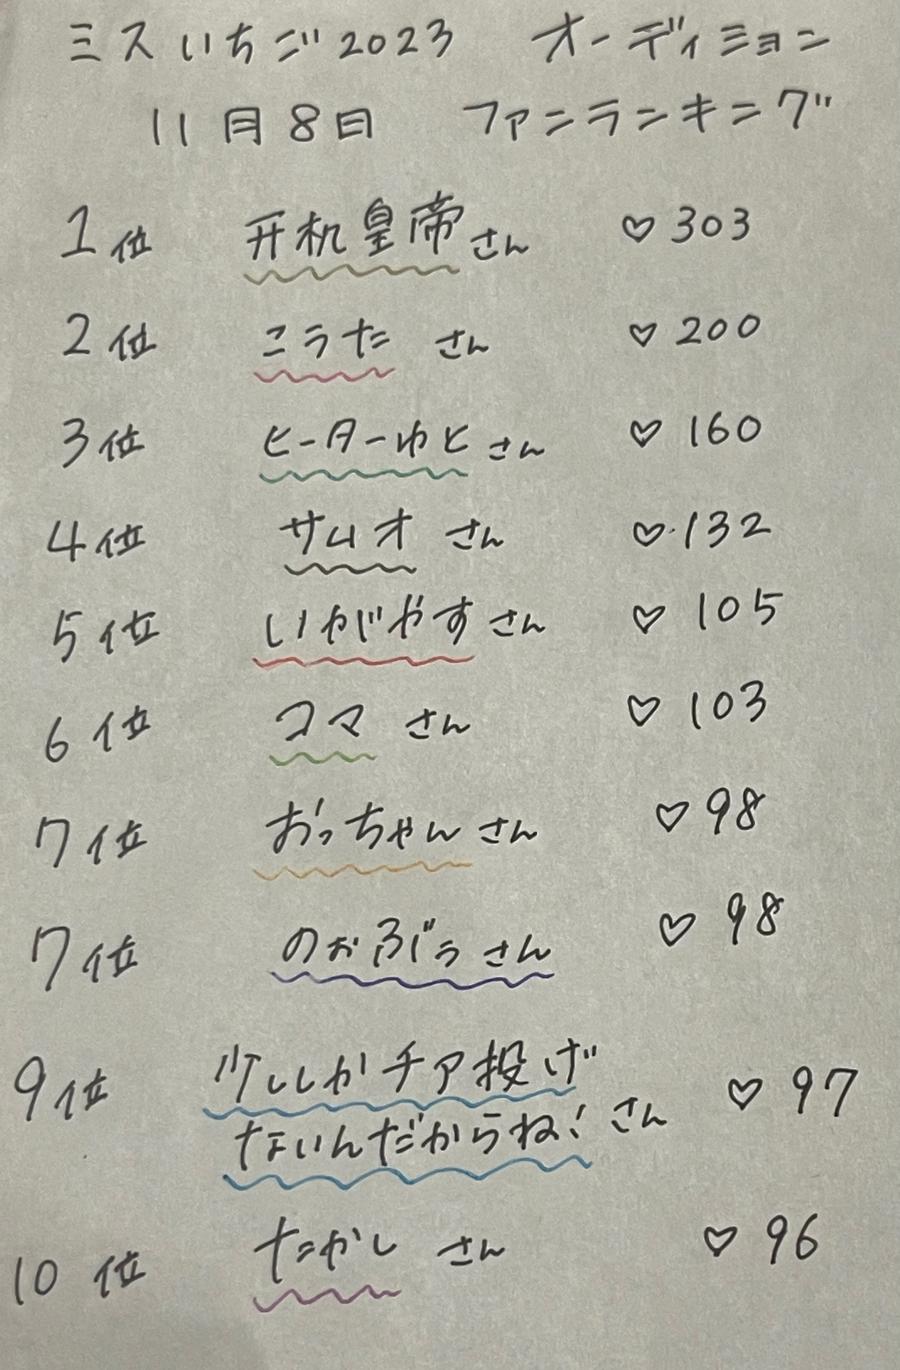 ミスいちご2023 オーディション
11月8日 ファンランキング
1位 开机皇帝さん ♡303
2位 こうた さん ♡200
3位 ヒーターゆとさん ♡160
4位 サムオ さん ♡132
5位 いがやすさん ♡105
6位 コマ さん ♡103
7位 おっちゃんさん ♡98
7位 のぉぶぅさん ♡98
9位 少ししかチア投げ
ないんだからね!さん ♡97
10位 たかし さん ♡96